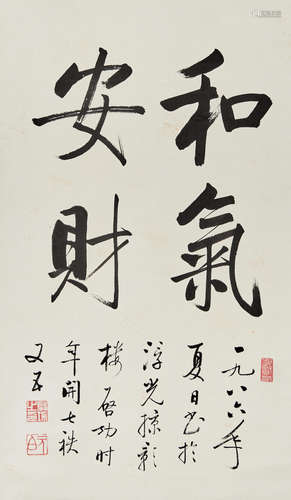 和氣
安財
一九八六年
夏日书於
浮光掠影
楼启功时
年開七秩
又五